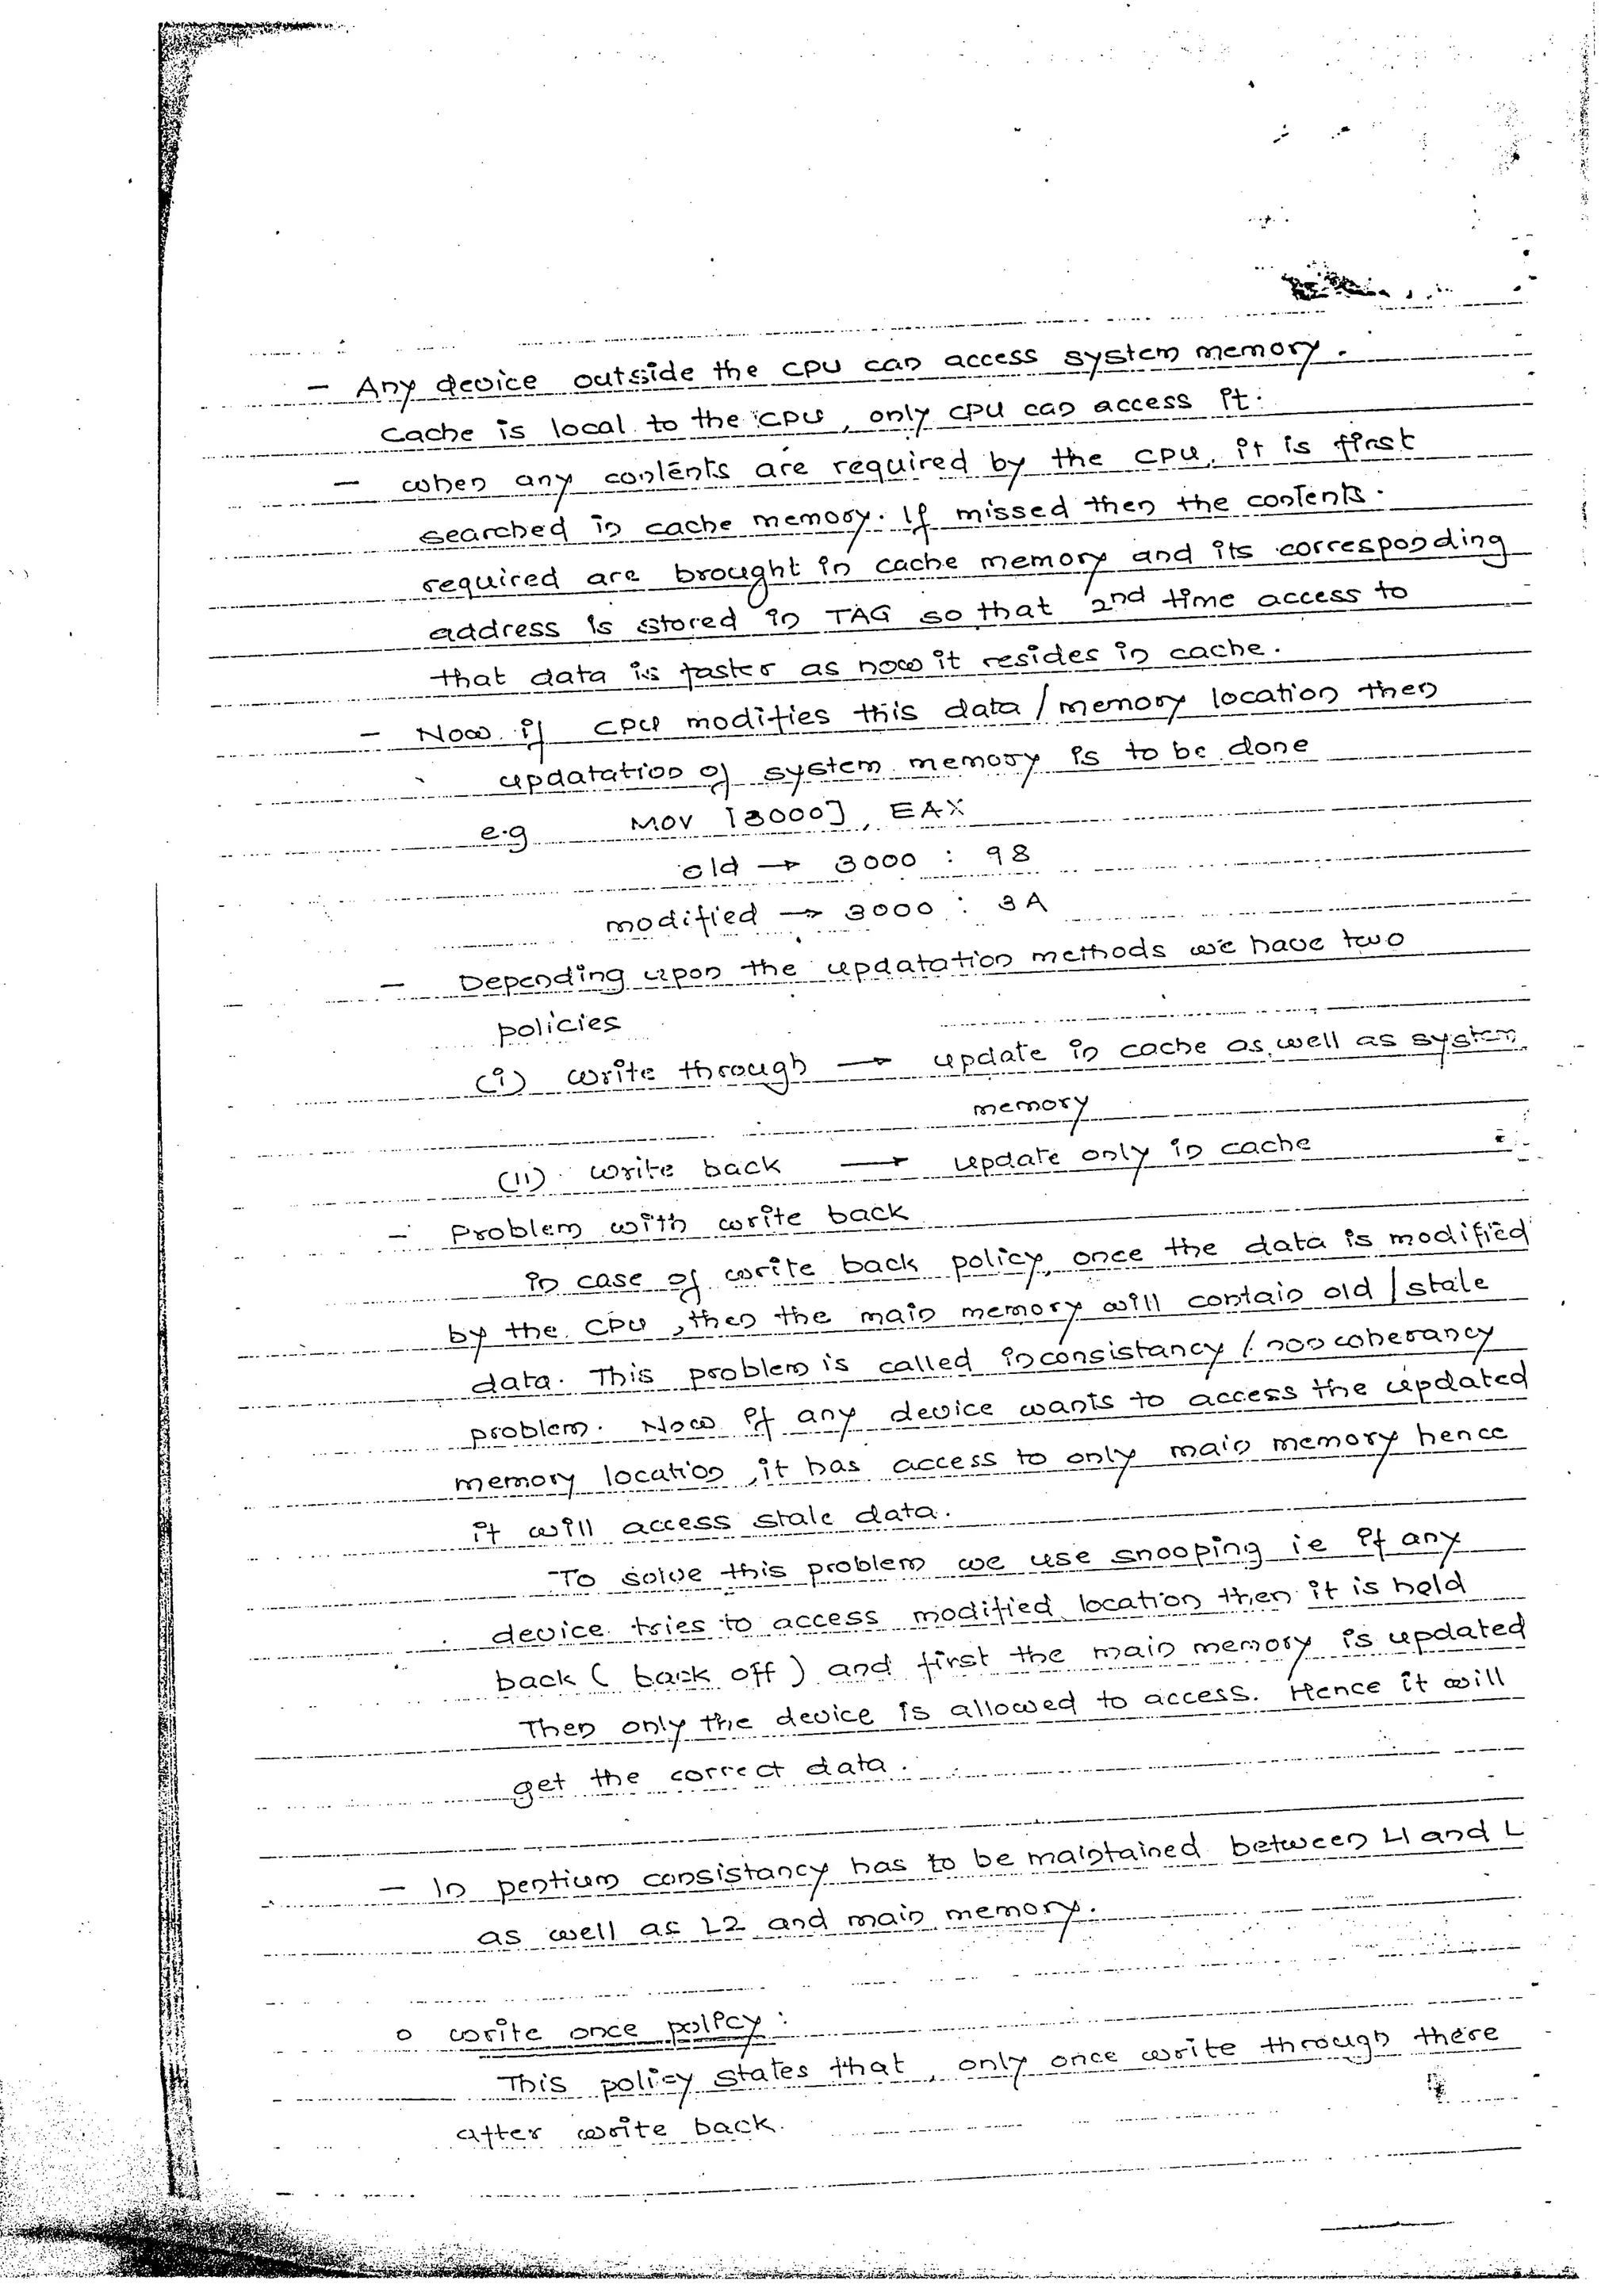 - Any device outside the CPU can access system memory.
Cache is local to the CPU, only CPU can access it.
- when any contents are required by the CPU, it is first
searched in cache memory. If missed then the contents.
required are brought in cache memory and its corresponding
address is stored in TAG so that 2nd time access to
that data is faster as now it resides in cache.
- Now if CPU modifies this data / memory location then
updatation of system memory is to be done
e.g MOV [3000], EAX
old → 3000 : 98
modified → 3000 : 3A
- Depending upon the updatation methods we have two
policies
(i) write through → update in cache as well as system
memory
(ii) write back → update only in cache
- Problem with write back
in case of write back policy, once the data is modified
by the CPU, then the main memory will contain old / stale
data. This problem is called inconsistancy / noncoherancy
problem. Now if any device wants to access the updated
memory location, it has access to only main memory hence
it will access stale data.
To solve this problem we use snooping ie if any
device tries to access modified location then it is held
back ( back off ) and first the main memory is updated
Then only the device is allowed to access. Hence it will
get the correct data.
- In pentium consistancy has to be maintained between L1 and L
as well as L2 and main memory.
o write once policy :
This policy states that, only once write through there
after write back.